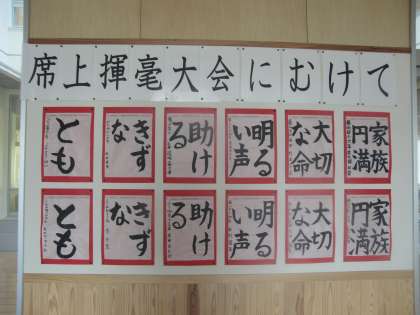 席上揮毫大会にむけて
家族
円満
大切
な命
明る
い声
助け
る
きず
な
とも
家族
円満
大切
な命
明る
い声
助け
る
きず
な
とも